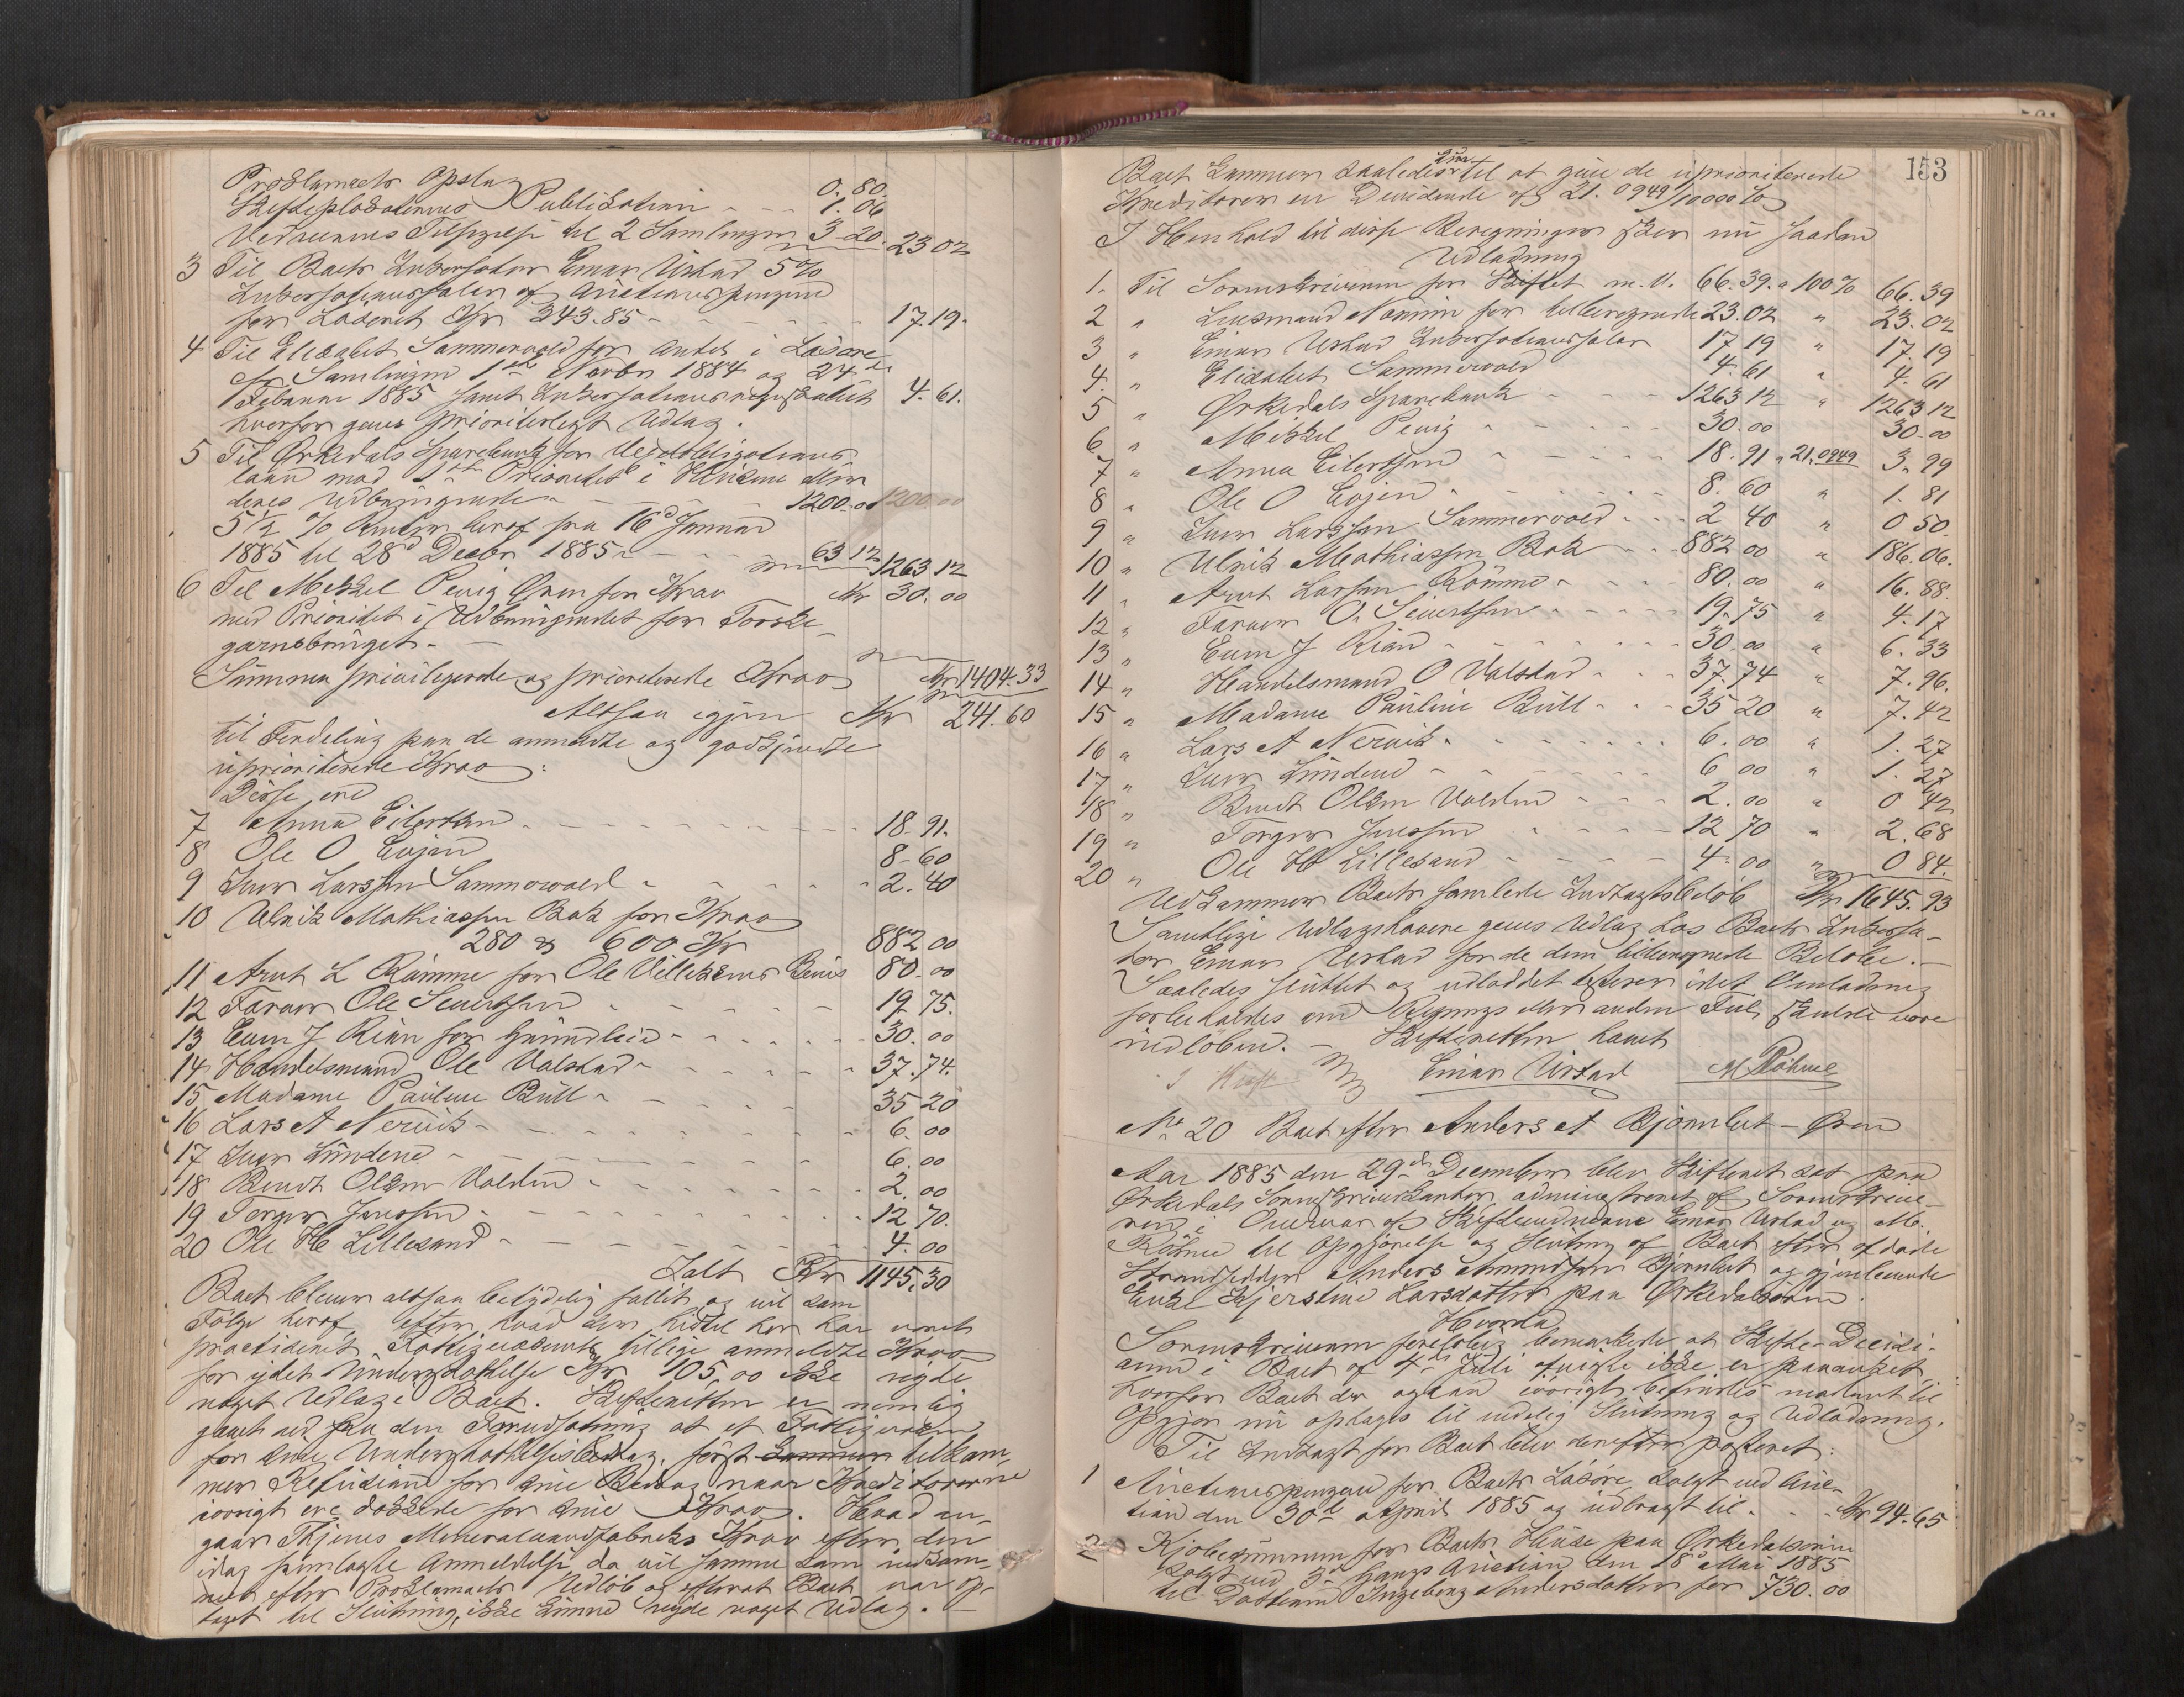 Proklamaets Opslag 0.80
Skifteplakaternes Publikation 1.06
Vedrerens Tilsigelse til 2 Samlinger 3-20. 23 02
3 Til Boets Inkassator Einar Urstad 5%
Inkassationssalær af Auctionspengene
for Løsøret Kr 343.85 - 17.19.
4 Til Elisabet Sammervold for Antek i Løsøre
Samlingen 1ste Novbr 1884 og 24de
Februar 1885 samt Inkassations 4.61.
hvorfor gives prioriteret Udlæg.
5 Til Ørkedals Sparebank for
laan mod 1ste Prioritet i Husene
deres Udbringende 1200.00 1200.00
5½ % Renter heraf fra 16d Januar
1885 til 28d Decbr 1885 63 12 1263 12
6 Til Mikkel Øren for Krav Kr 30.00
med Prioritet i Udbringendet for Torske-
garnsbruget.
Summa privilegerede og prioriterede Krav Kr 1404.33
Altsaa igjen Kr 241.60
til Fordeling paa de anmeldte og godkjendte
uprioriterede Krav:
Disse ere
7 Anna Eilertsen 18.91.
8 Ole O Evjen 8-60
9 Iver Larssen Sammervold 2.40
10 Ulrik Mathiassen Bak for Krav
280 & 600 Kr 882 00
11 Arnt L Rømme for Ole 80.00
12 Farver Ole Sivertsen 19.75.
13 Even J Rian for Grundleie 30.00
14 Handelsmand Ole Valstad 37.74.
15 Madame Pauline Bull 35 20
16 Lars A Nervik 6.00
17 Iver Lundene 6.00
18 Bendt Olsen Volden 2.00
19 Torger Jenssen 12 70.
20 Ole H Lillesand 4.00
Ialt Kr 1145.30
Boet bliver altsaa betydelig fallit og vil som
Følge heraf efter hvad der hidtil her har været
practiseret Fattigvæsenets tillige anmeldte Krav
for ydet Understøttelse Kr 105,00 ikke nyde
noget Udlæg i Boet. Skifteretten er nemlig
gaaet ud fra den Forudsætning at et Fattigvæsen
for sine Understøttelsesbidrag, først tilkom-
mer Refusion for sine Bidrag naar Kreditorerne
iøvrigt ere dækkede for sine Krav. Hvad an-
gaar Thjems Mineralvandfabriks Krav efter den
idag fremlagte Anmeldelse da vil samme som indkom-
met efter Proklamaets Udløb og efterat Boet var op-
taget til Slutning, ikke kunne nyde noget Udlæg.
153
Boet kommer saaledes til at give de uprioriterede
Kreditorer en Dividende af 21.0949/10000 %
I Henhold til disse Beregninger skeer nu saadan
Udlodning
1. Til Sorenskriveren for Skiftet m.V. 66.39. a 100% 66.39
2 " Lensmand for tilberegnede 23.02 " 23.02
3 " Einar Urstad Inkassationssalær 17.19 " 17.19
4. " Elisabet Sammervold 4.61 " 4.61
5 " Ørkedals Sparebank 1263 12 " 1263 12
6 " Mikkel 30.00 30.00
7 " Anna Eilertsen 18.91 " 21,0949 3.99
8 " Ole O Evjen 8.60 " 1.81
9 " Iver Larssen Sammervold 2 40 " 0 50.
10 " Ulrik Mathiassen Bak 882 00 " 186.06.
11 " Arnt Larsen Rømme 80.00 " 16.88.
12 " Farver O. Sivertsen 19.75 " 4.17
13 " Even J Rian 30.00 " 6.33
14 " Handelsmand O Valstad 37.74 " 7.96.
15 " Madame Pauline Bull 35 20 " 7.42
16 " Lars A Nervik 6.00 " 1.27
17 " Iver Lundene 6 00 " 1.27
18 " Bendt Olsen Volden 2.00 " 0 42
19 " Torger Jenssen 12 70 " 2.68
20 " Ole H Lillesand 4.00 " 0 84.
Udkommer Boets samlede Indtægtsbeløb Kr 1645.93
Samtlige Udlægshavere gives Udlæg hos Boets Inkassa-
tor Einar Urstad for de dem tilberegnede Beløbe.
Saaledes sluttet og udloddet idet Omlodning
forbeholdes om Regnings eller anden Feil skulde være
indløben. - Skifteretten hævet
Einar Urstad M Röhme
No 20 Boet efter Anders A Bjørnbet - Øren
Aar 1885 den 29de December blev Skifteret sat paa
Ørkedals Sorenskriverkontor administreret af Sorenskrive-
ren i Overvær af Skiftevidnerne Einar Urstad og M.
Röhme til Opgjørelse og Slutning af Boet efter afdøde
Strandsidder Anders Amundsen Bjørnbet og gjenlevende
Enke Kjerstine Larsdatter paa Ørkedalsøren.
Hvorda
Sorenskriveren foreløbig bemærkede at Skifte-Decisi-
onen i Boet af 4de Juli afvigte ikke er paaanket,
hvorfor Boet der ogsaa iøvrigt befindes modent til
Opgjør nu optages til endelig Slutning og Udlodning.
Til Indtægt for Boet blev derefter posteret:
1 Auctionspengene for Boets Løsøre solgt ved Auc-
tion den 30te April 1885 og udbragt til Kr 94.65
2 Kjøbesummen for Boets Huse paa Ørkedalsøren
solgt ved 3die Gangs Auction den 18d Mai 1885
til Datteren Ingeborg Andersdatter for 730.00